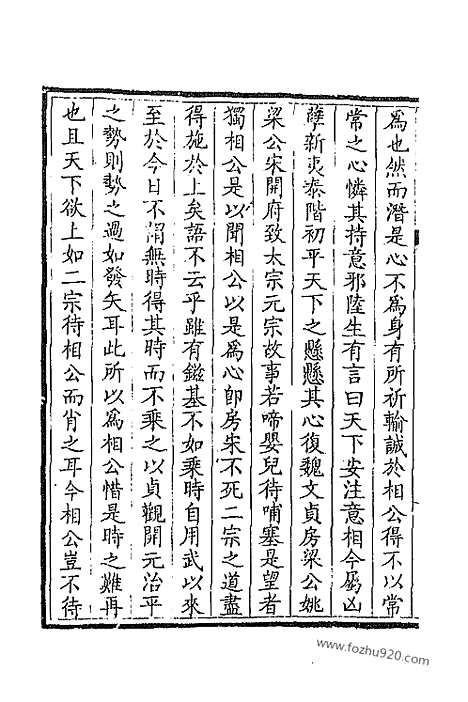 爲也然而潛是心不爲身有所祈輸誠於相公得不以常
常之心憐其持意邪陸生有言曰天下安注意相今屬凶
孽新夷泰階初平天下之懸懸其心復魏文貞房梁公姚
梁公宋開府致太宗元宗故事若啼嬰兒待哺塞是望者
獨相公是以聞相公以是爲心卽房宋不死二宗之道盡
得施於上矣語不云乎雖有鎡基不如乘時自用武以來
至於今日不閒無時得其時而不乘之以貞觀開元治平
之勢則勢之過如發矢耳此所以爲相公惜是時之難再
也且天下欲上如二宗待相公而肖之耳今相公豈不待
www.fozhu920.com